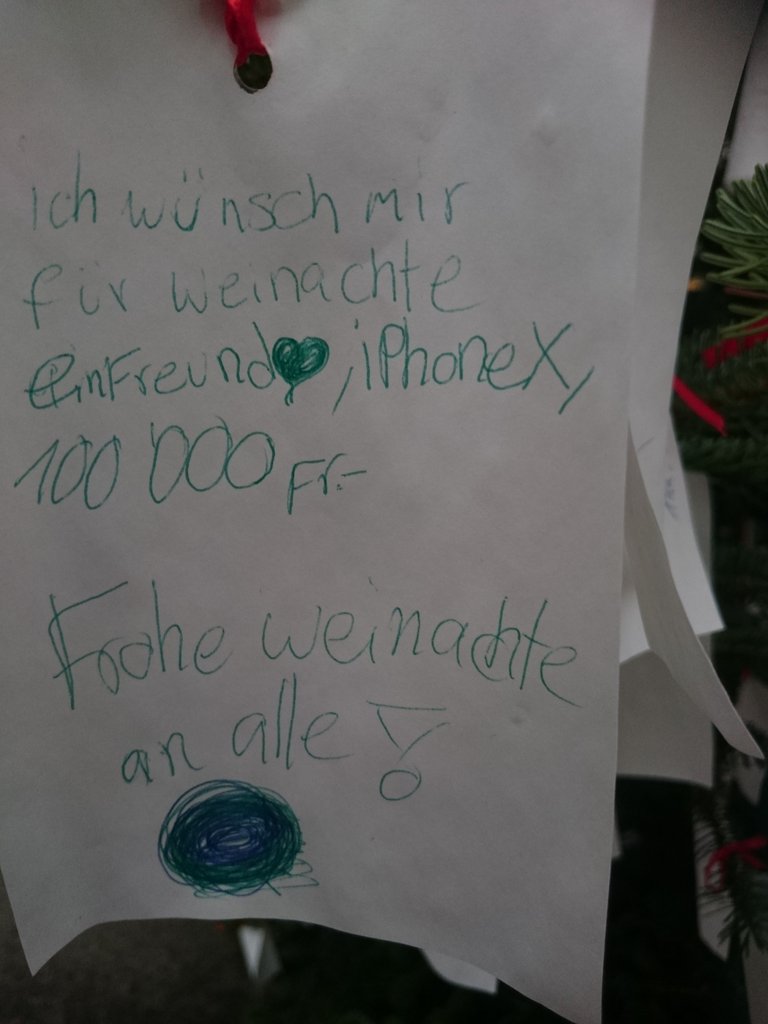 ich wünsch mir
für weinachte
ein Freund, iPhone X,
100'000 Fr.-
Frohe weinachte
an alle!